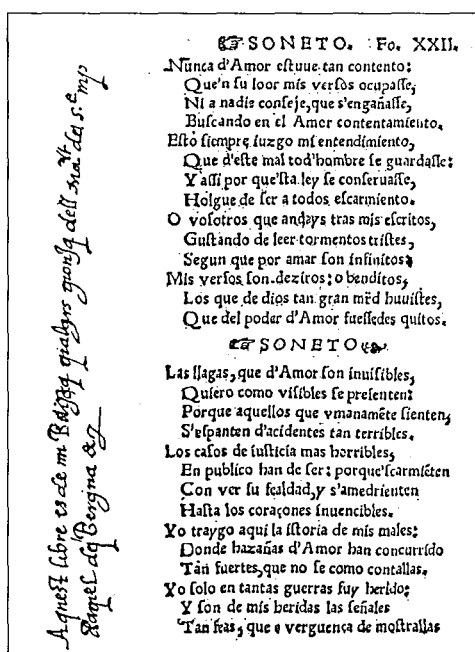 SONETO. Fo. XXII.
Nunca d'Amor estuue tan contento:
Que'n su loor mis versos ocupasse,
Ni a nadie conseje, que s'engañasse,
Buscando en el Amor contentamiento.
Esto siempre iuzgo mi entendimiento,
Que d'este mal tod'hombre se guardasse:
Y assi por que'sta ley se conseruasse,
Holgue de ser a todos escarmiento.
O vosotros que andays tras mis escritos,
Gustando de leer tormentos tristes,
Segun que por amar son infinitos:
Mis versos son deziros: o benditos,
Los que de dios tan gran mr̃d huuistes,
Que del poder d'Amor fuessedes quitos.
SONETO
Las llagas, que d'Amor son inuisibles,
Quiero como visibles se presenten:
Porque aquellos que vmanamẽte sienten,
S'espanten d'acidentes tan terribles.
Los casos de iusticia mas horribles,
En publico han de ser: porque'scarmiẽten
Con ver su fealdad, y s'amedrienten
Hasta los coraçones inuencibles.
Yo traygo aqui la istoria de mis males:
Donde hazañas d'Amor han concurrido
Tan fuertes, que no se como contallas.
Yo solo en tantas guerras fuy herido:
Y son de mis heridas las señales
Tan feas, que e verguença de mostrallas
Aquest libre es de mi